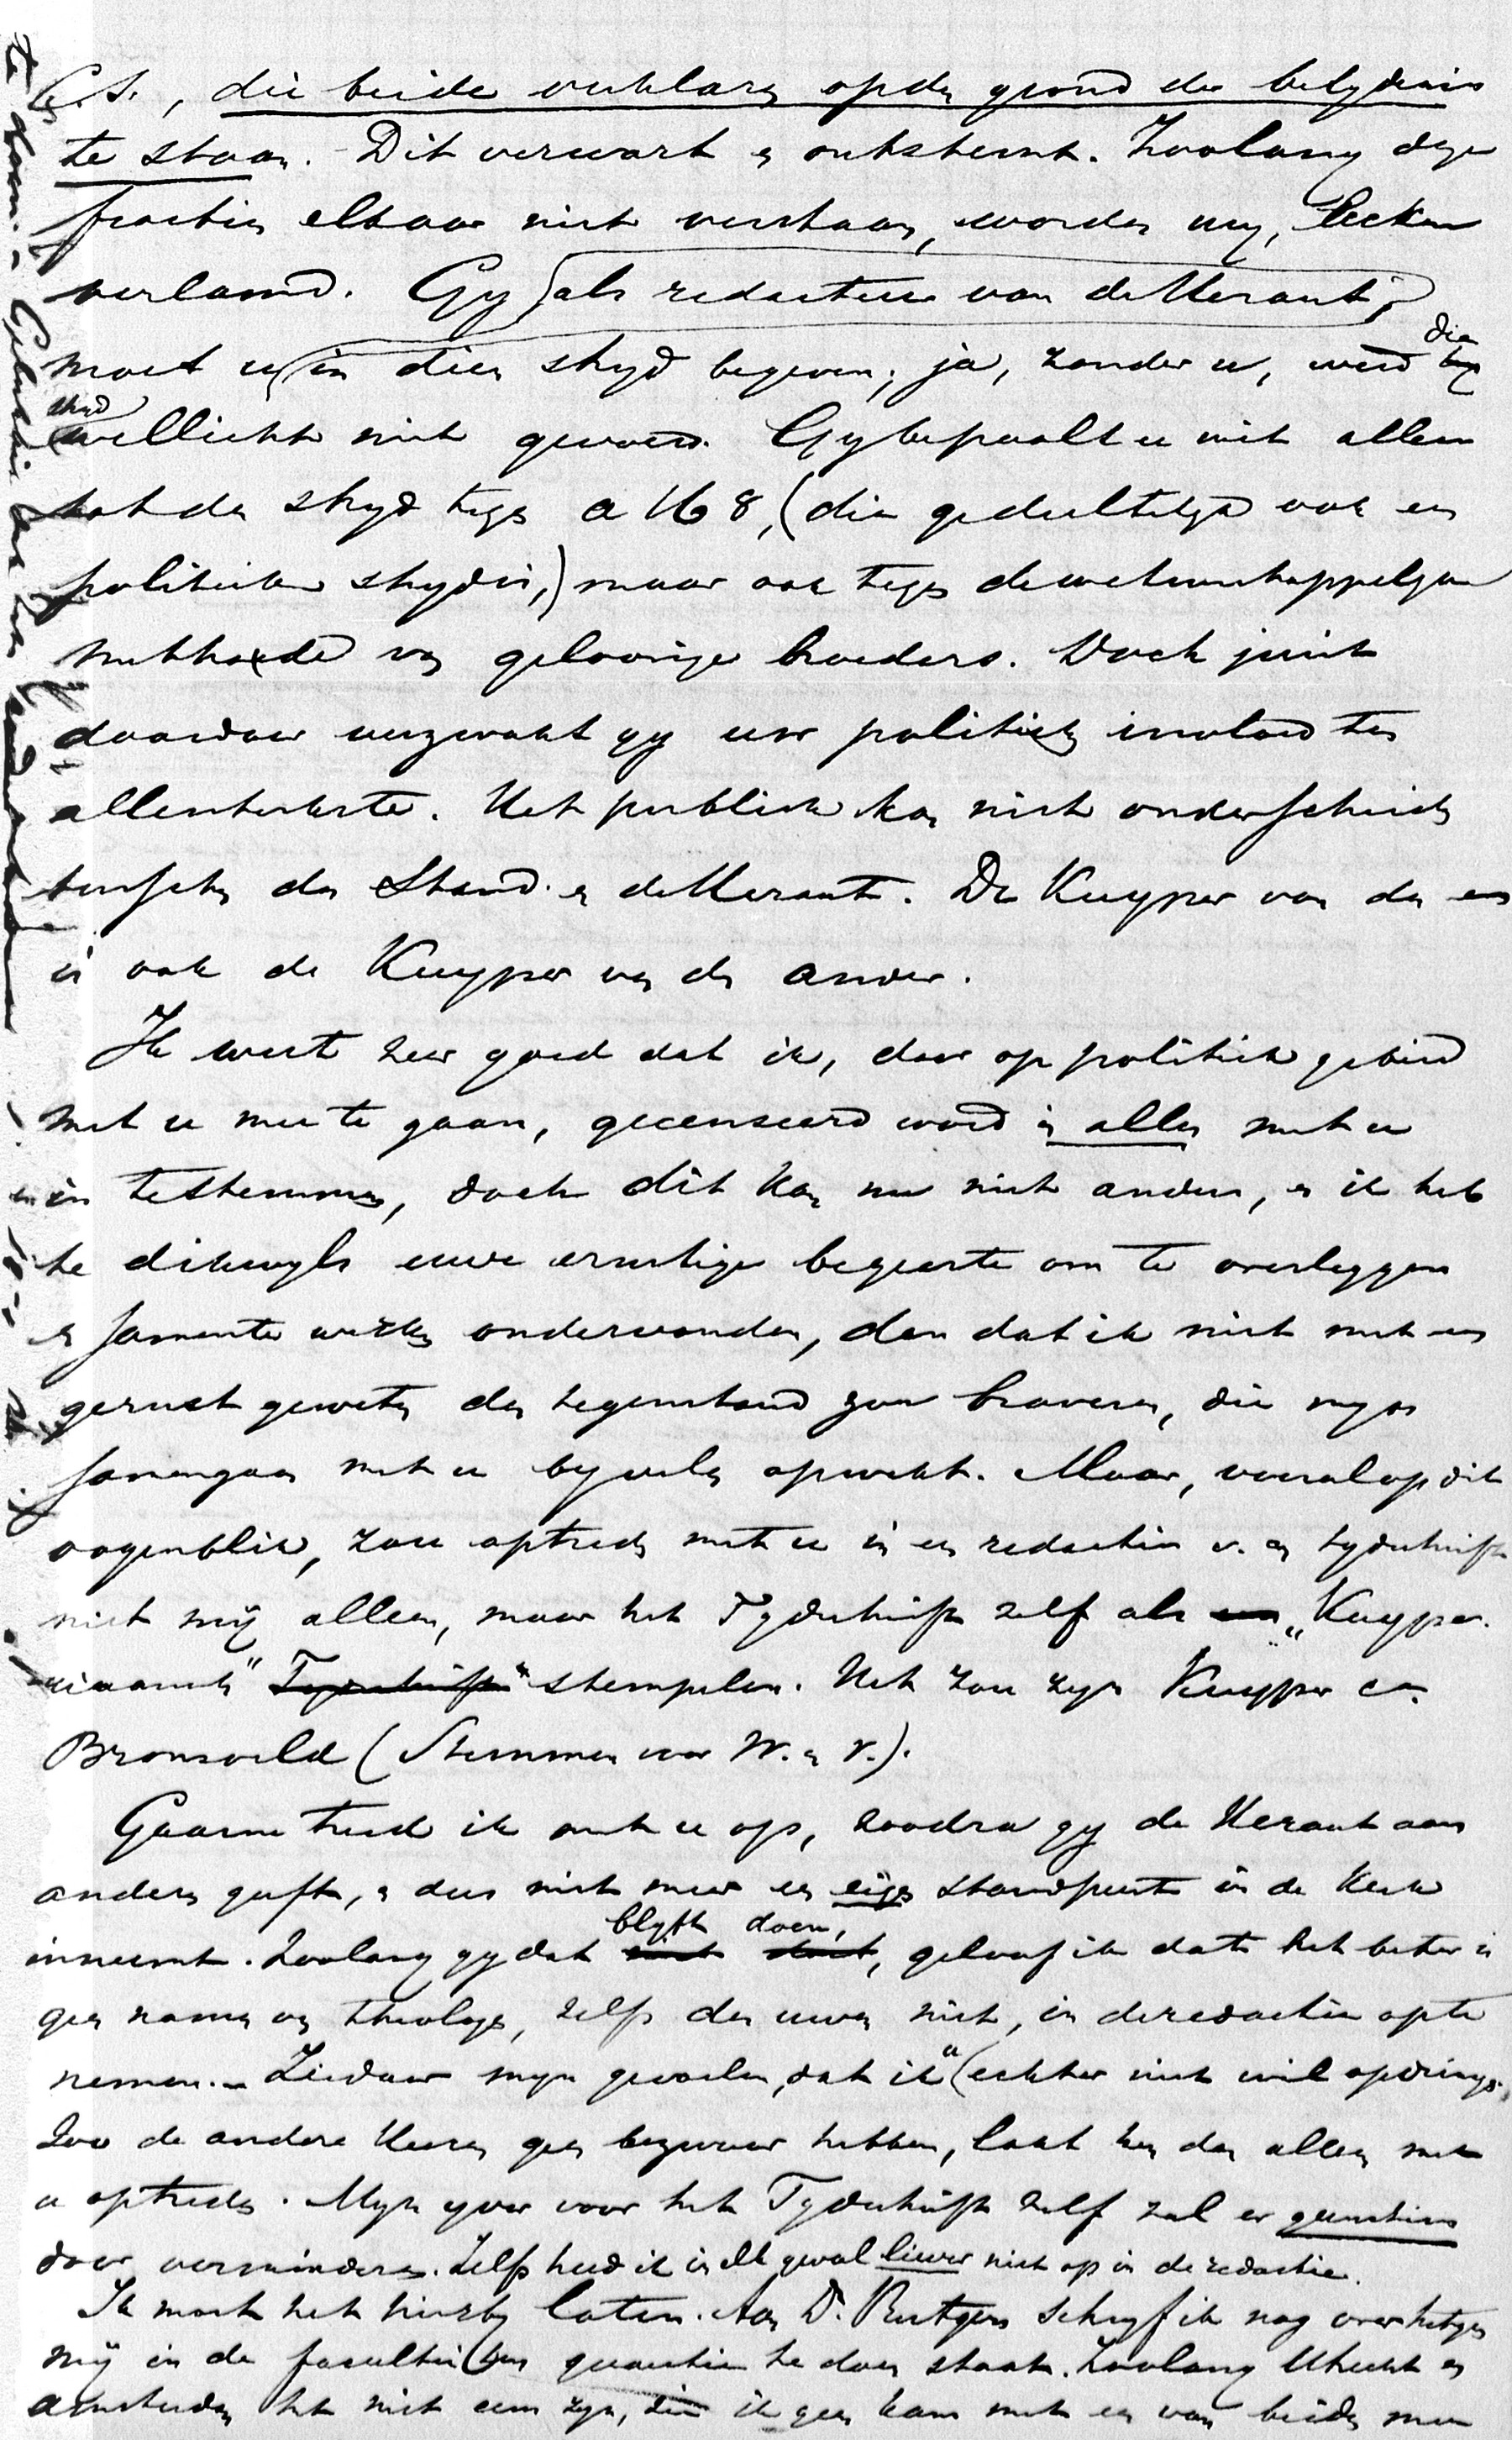 C.S., die beide verklaren op den grond der belydenis
te staan. - Dit verwart en ontstemt. Zoolang deze
fractien elkaar niet verstaan, worden wy, leeken
verlamd. Gy (als redacteur van de Heraut,)
moet u in dien stryd begeven; ja, zonder u, werd die
stryd wellicht niet gevoerd. Gy bepaalt u niet alleen
tot den stryd tegen a 168, (die gedeeltelyk ook een
politieke stryd is,) maar ook tegen de wetenschappelyke
methode van geloovige broeders. Doch juist
daardoor verzwakt gy uw politieken invloed ten
allersterkste. Het publiek kan niet onderscheiden
tusschen de Stand. en de Heraut. De Kuyper van de een
is ook de Kuyper van de ander.
Ik weet zeer goed dat ik, door op politiek gebied
met u mee te gaan, gecenseerd word in alles met u
in te stemmen, doch dit kan nu niet anders, en ik heb
te dikwyls uwe ernstige begeerte om te overleggen
en samen te werken ondervonden, dan dat ik niet met een
gerust geweten den tegenstand zou braveren, die myn
samengaan met u bywylen opwekt. Maar, vooral op dit
oogenblik, zou optreden met u in een redactie v. een tydschrift
niet mij alleen, maar het Tydschrift zelf als „Kuype-
riaansch" stempelen. Het zou zyn Kuyper en
Bronsveld (Stemmen voor W. en V.).
Gaarne treed ik met u op, zoodra gy de Heraut aan
anderen geeft, en dus niet meer een eigen standpunt in de Kerk
inneemt. Zoolang gy dat blyft doen, geloof ik dat het beter is
geen namen van theologen, zelfs den uwen niet, in de redactie op te
nemen. - Ziedaar myn gevoelen, dat ik u (echter niet wil opdringen.
Zoo de andere Heeren geen bezwaar hebben, laat hen dan alleen met
u optreden. Myn yver voor het Tydschrift zelf zal er geenszins
door verminderen. Zelf treed ik in elk geval liever niet op in de redactie.
Ik moet het hierby laten. Aan Dr. Rutgers schryf ik nog over hetgeen
mij in de faculteiten quaestie te doen staat. Zoolang Utrecht en
Amsterdam het niet eens zyn, zie ik geen kans met een van beiden mee